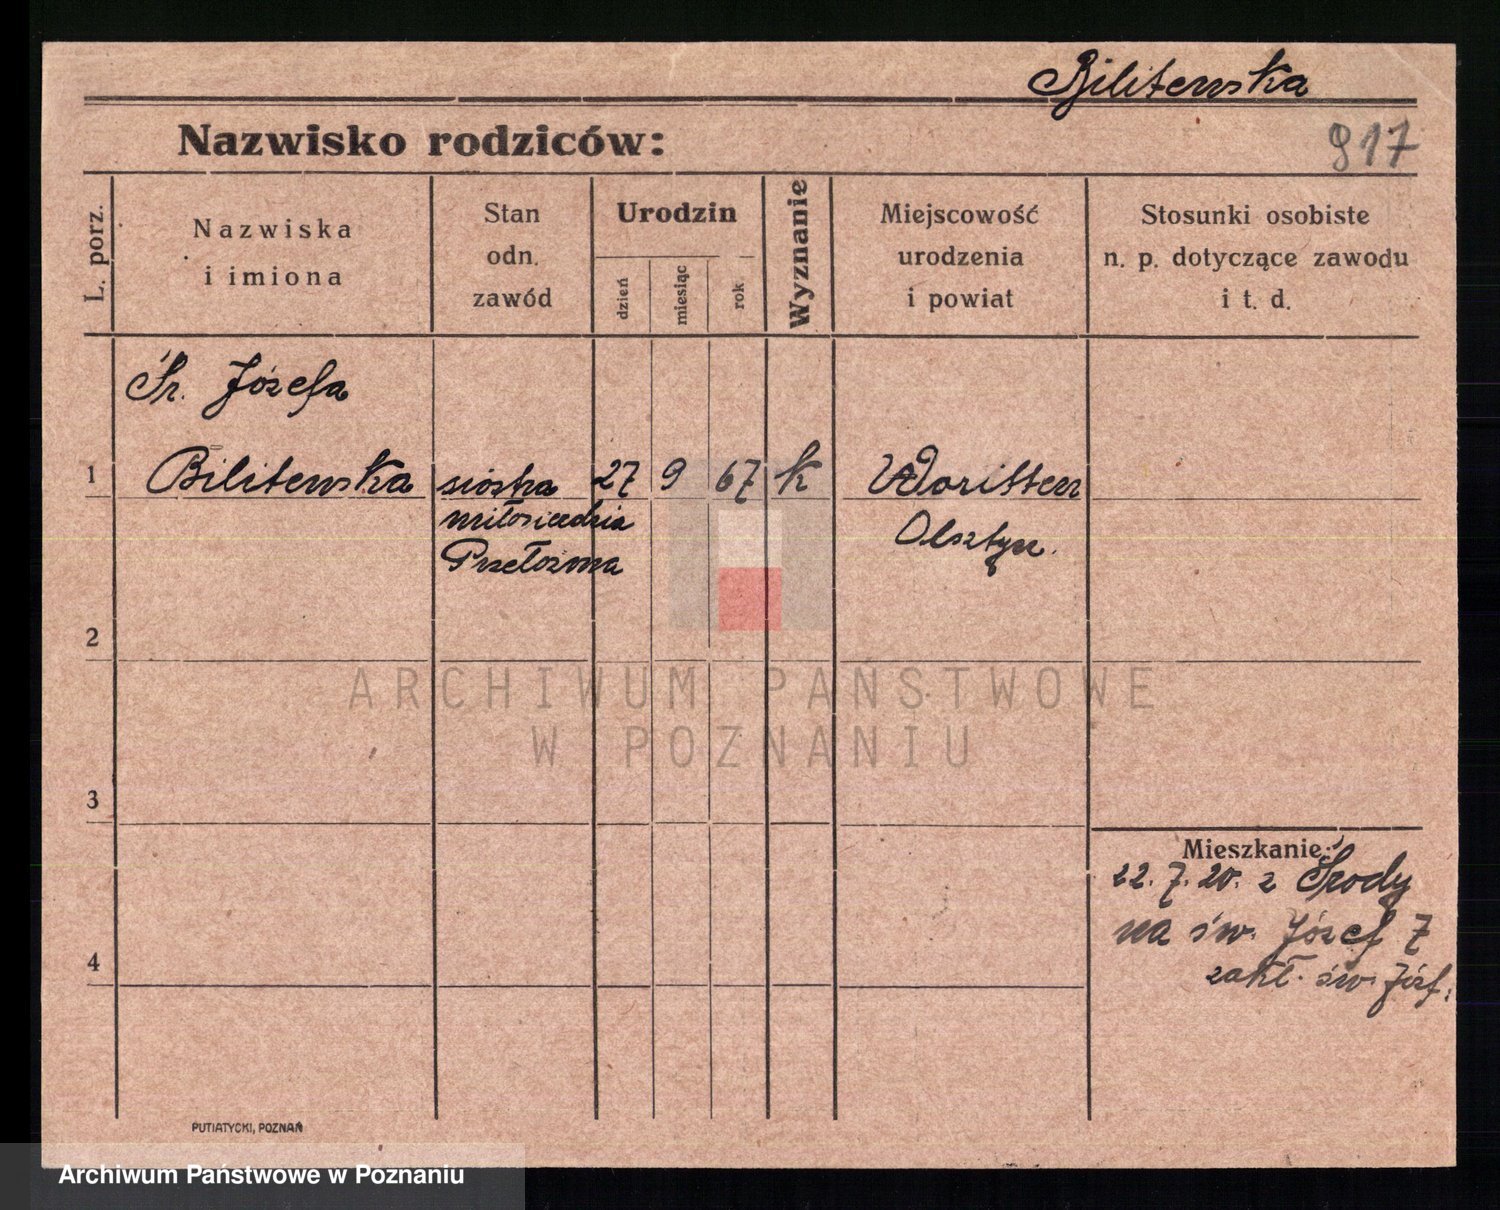 Bilitewska
Nazwisko rodziców:
917
L. porz.
Nazwiska
i imiona
Stan
odn.
zawód
Urodzin
dzień
miesiąc
rok
Wyznanie
Miejscowość
urodzenia
i powiat
Stosunki osobiste
n. p. dotyczące zawodu
i t. d.
Śr. Józefa
1 Bilitewska siostra 27 9 67 k Woritten
miłosierdzia Olsztyn.
Przełożona
2
ARCHIWUM PAŃSTWOWE
W POZNANIU
3
Mieszkanie:
22. 7. 20. z Środy
na św. Józef 7
4
zakł. św. Józf.
PUTIATYCKI, POZNAŃ
Archiwum Państwowe w Poznaniu